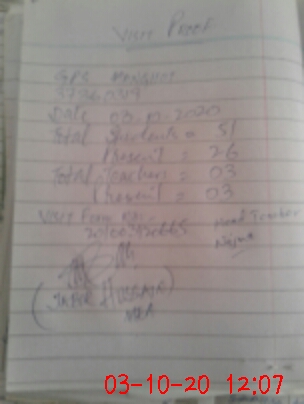 Visit Proof
GPS
37260319
Date 03 10 2020
Total Students = 51
Present = 26
Total Teachers = 03
Present = 03
Visit Form No:-
Head Teacher
Najma
HUSSAIN)
MEA
03-10-20 12:07